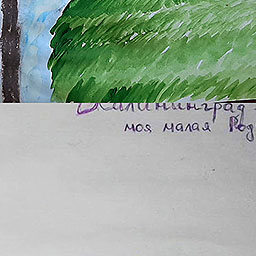 Калининград -
моя малая Род